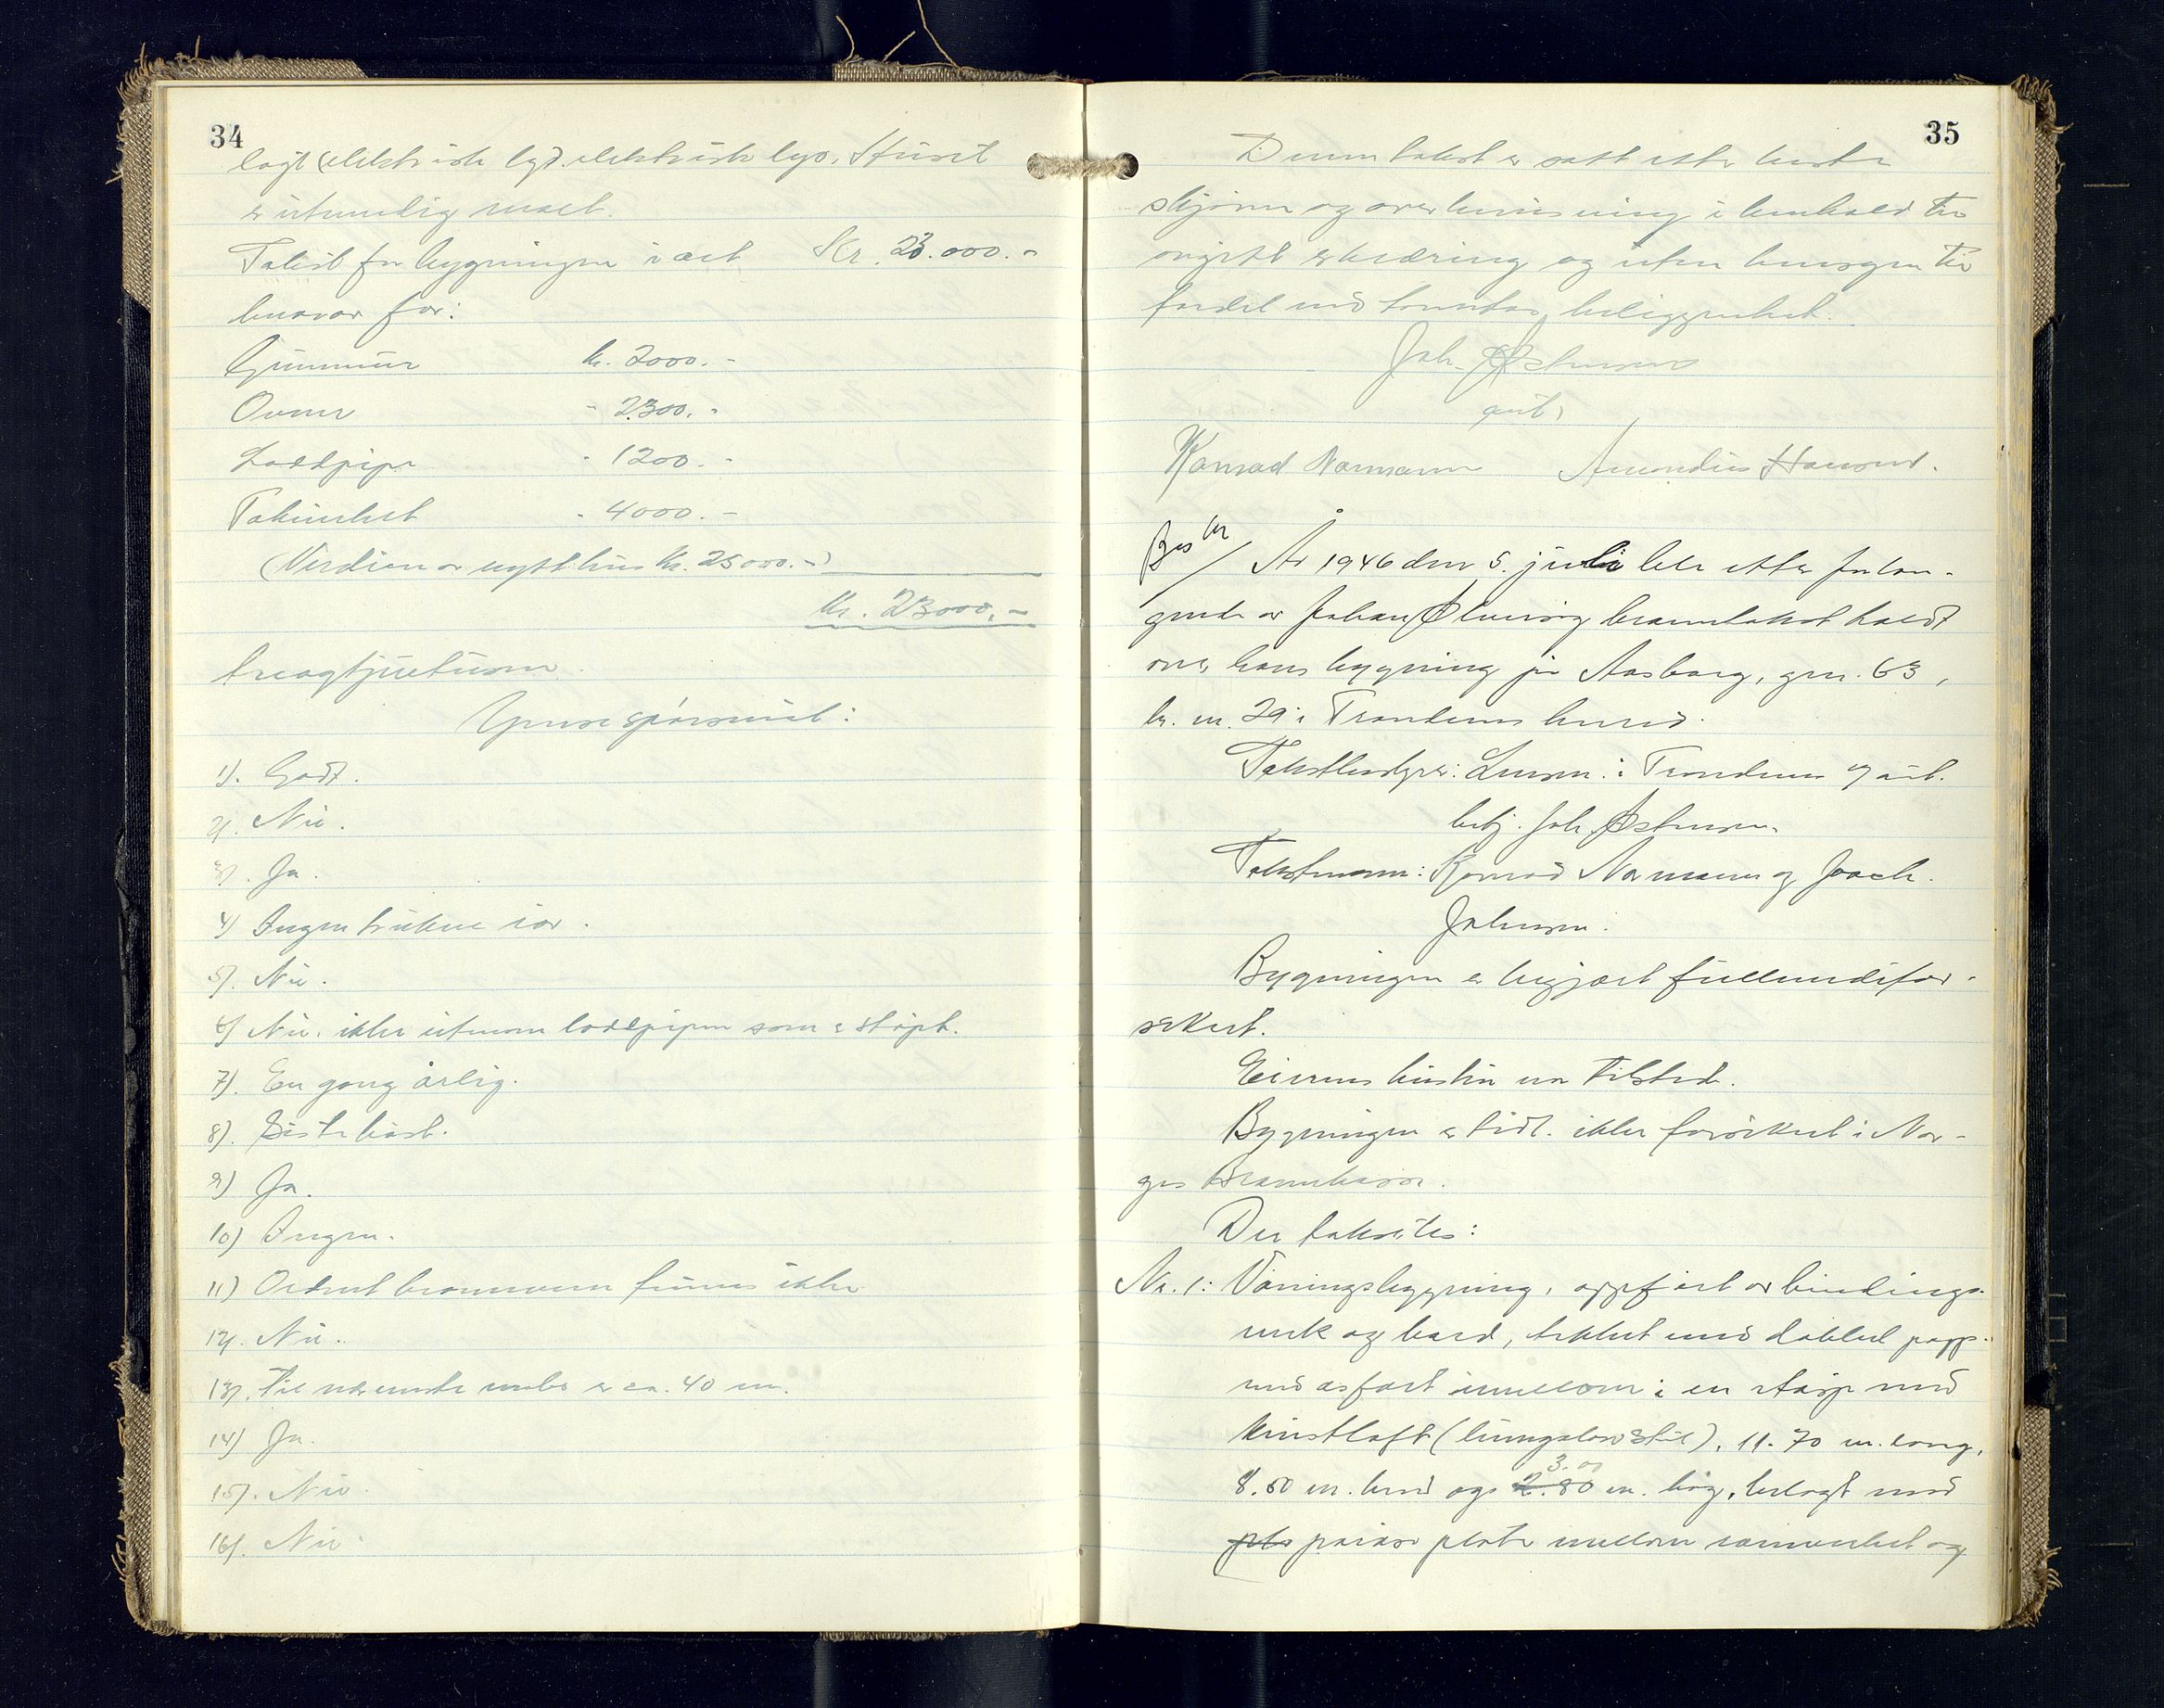 34
lagt (elektrisk lys. elektrisk lys. Huset
er utvendig malt.
Takst for bygningen i alt Kr. 23.000.-
hvorav for:
Grunnmur kr. 2000.-
Ovner - 2300.-
Loddpipe - 1200.-
Takverket - 4000.-
(Verdien av nytt hus kr. 25000.-)
Kr. 23000.-
treogtjuetusen.
Ymse spørsmål:
1). Godt.
2). Nei.
3). Ja.
4) Ingen brukne rør.
5). Nei.
6) Nei. ikke utenom loddpipen som er støpt.
7). En gong årlig.
8). Siste høst.
9) Ja.
10) Ingen.
11) Ordnet brannvern finnes ikke
12). Nei.
13). Til nærmeste nabo er ca. 40 m.
14) Ja.
15). Nei.
16). Nei.
35
Denne takst er satt etter beste
skjønn og overbevisning i henhold til
avgitt erklæring og uten hensyn til
fordel ved tomtens beliggenhet.
Joh. Østensen
aut.
Konrad Normann Amandus Hansen.
År 1946 den 5. juli ble etter forlan-
gende av Johan branntakst holdt
over hans bygning på Aasborg, gnr. 63,
br. nr. 29 i Trondenes herred.
Takstbestyrer: Lensm. i Trondenes v/ aut.
betj. Joh. Østensen.
Takstmenn: Konrad Normann og Joach.
Johnsen.
Bygningen er begjært fullverdifor-
sikret.
Eierens hustru var tilstede.
Bygningen er tidl. ikke forsikret i Nor-
ges Brannkasse.
Der takseres:
Nr. 1: Våningsbygning, oppført av bindings-
verk og bord, tekket med dobbel papp
med asfalt imellom i en etasje med
kvistloft (bungalowstil), 11.70 m. lang,
8.50 m. bred og 2.80 3.00 m. høg, belagt med
porøse plater mellom rammverket og